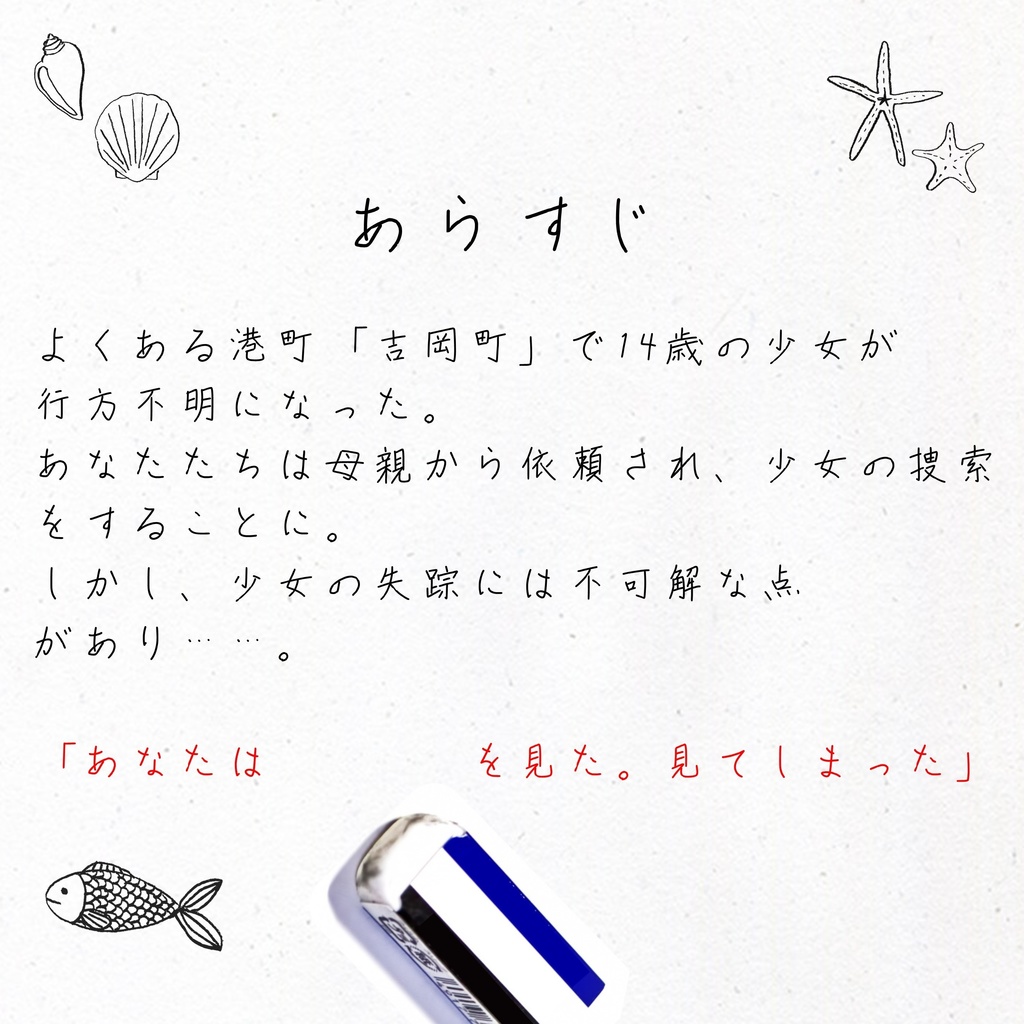 あらすじ
よくある港町「吉岡町」で14歳の少女が
行方不明になった。
あなたたちは母親から依頼され、少女の捜索
をすることに。
しかし、少女の失踪には不可解な点
があり……。
「あなたは　　　　を見た。見てしまった」